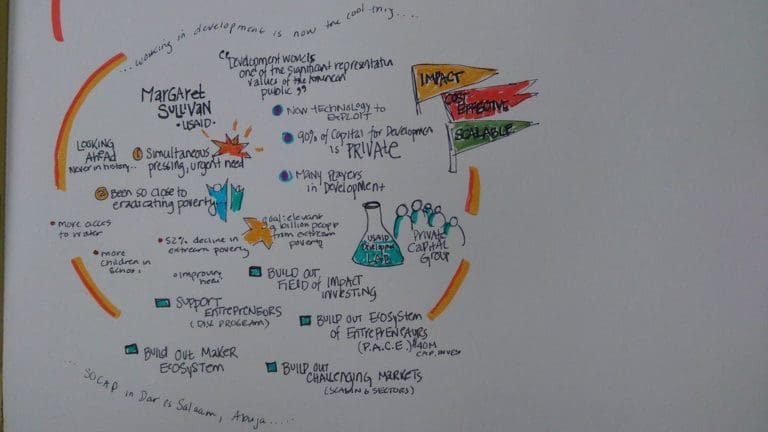 ... working in development is now the cool thing....
MARGARET
SULLIVAN
• USAID •
"Development work is
one of the significant representatin
values of the American
public"
• New technology to
exploit
• 90% of Capital for Developmen
is PRIVATE
• Many players
in Development
IMPACT
COST
EFFECTIVE
SCALABLE
LOOKING
AHEAD
Never in history...
1 Simultaneous
pressing, urgent need
2 Been so close to
eradicating poverty...
• more acces
to water
• more
children in
school
• 52% decline in
extream poverty
• improving
goal: elevate
billion people
from extream
poverty
USAID
Development
LAB
Private
Capital
Group
BUILD OUT
FIELD OF IMPACT
INVESTING
SUPPORT
ENTREPRENEURS
BUILD OUT ECOSYSTEM
OF ENTREPRENEURS
(P.A.C.E.) $40M
Build out Maker
ECOSYSTEM
BUILD OUT
CHALLENGING MARKETS
SOCAP in Dar es Salaam, Abuja.....